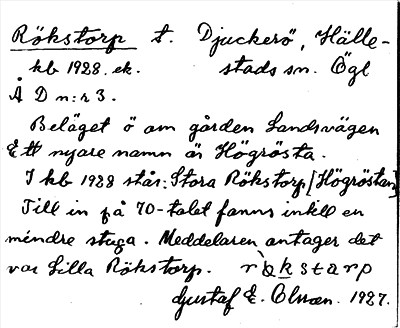 Rökstorp t. Djuckerö, Hälle-
kb 1928. ek. stads sn. Ögl
Å D n:r 3.
Beläget ö om gården Landsvägen
Ett nyare namn är Högrösta.
I kb 1928 står: Stora Rökstorp [Högröstan]
Till in på 70-talet fanns intill en
mindre stuga. Meddelaren antager det
var Lilla Rökstorp. rökstɑrp
Gustaf E. Olsson. 1927.